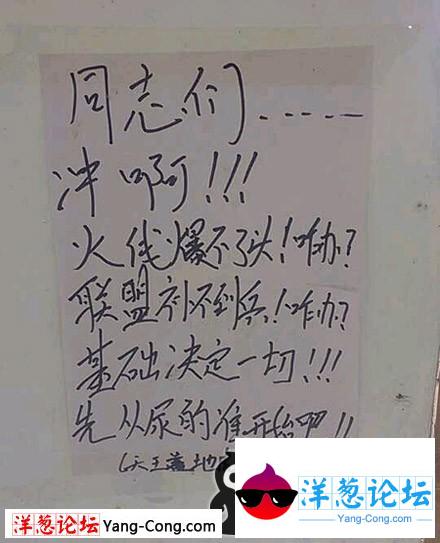 同志们......
冲啊!!!
火线爆不了头!咋办?
联盟补不到兵!咋办?
基础决定一切!!!
先从尿的准开始吧!!
(天王盖地
洋葱论坛Yang-Cong.com
洋葱论坛
Yang-Cong.com